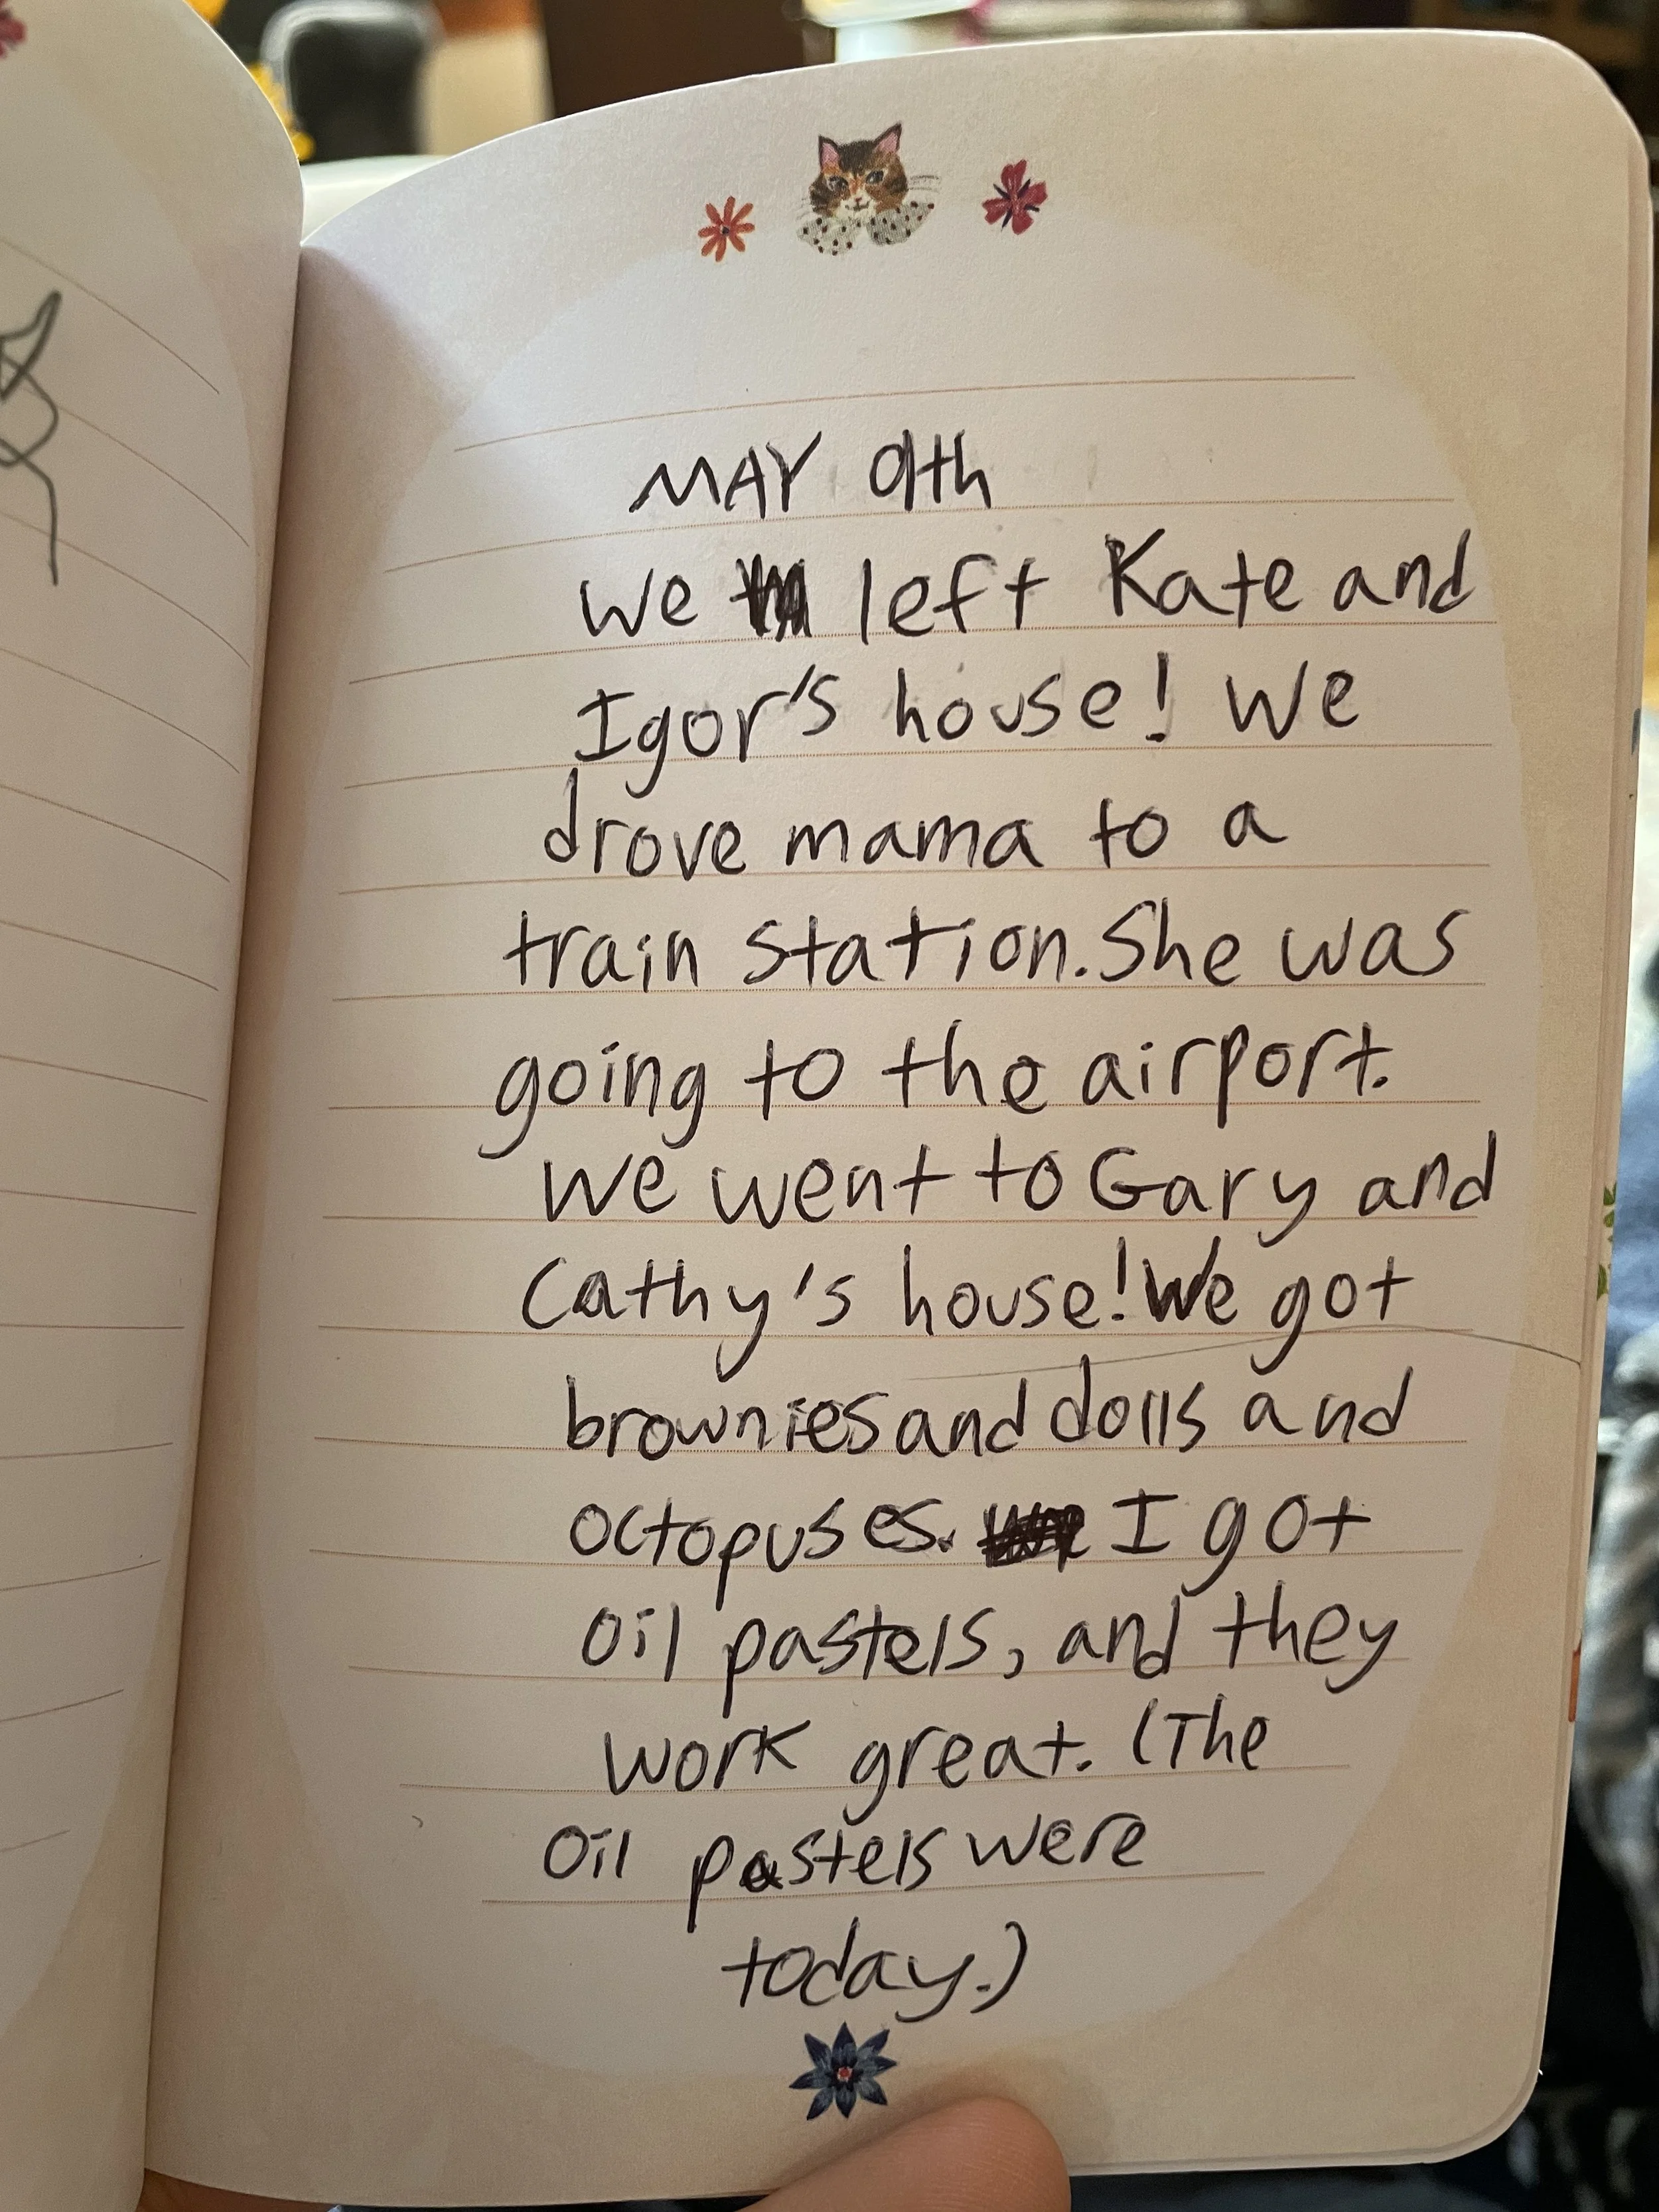 MAY 9th
We left Kate and
Igor's house! We
drove mama to a
train station. She was
going to the airport.
We went to Gary and
Cathy's house! We got
brownies and dolls and
octopuses. I got
oil pastels, and they
work great. (The
oil pastels were
today.)